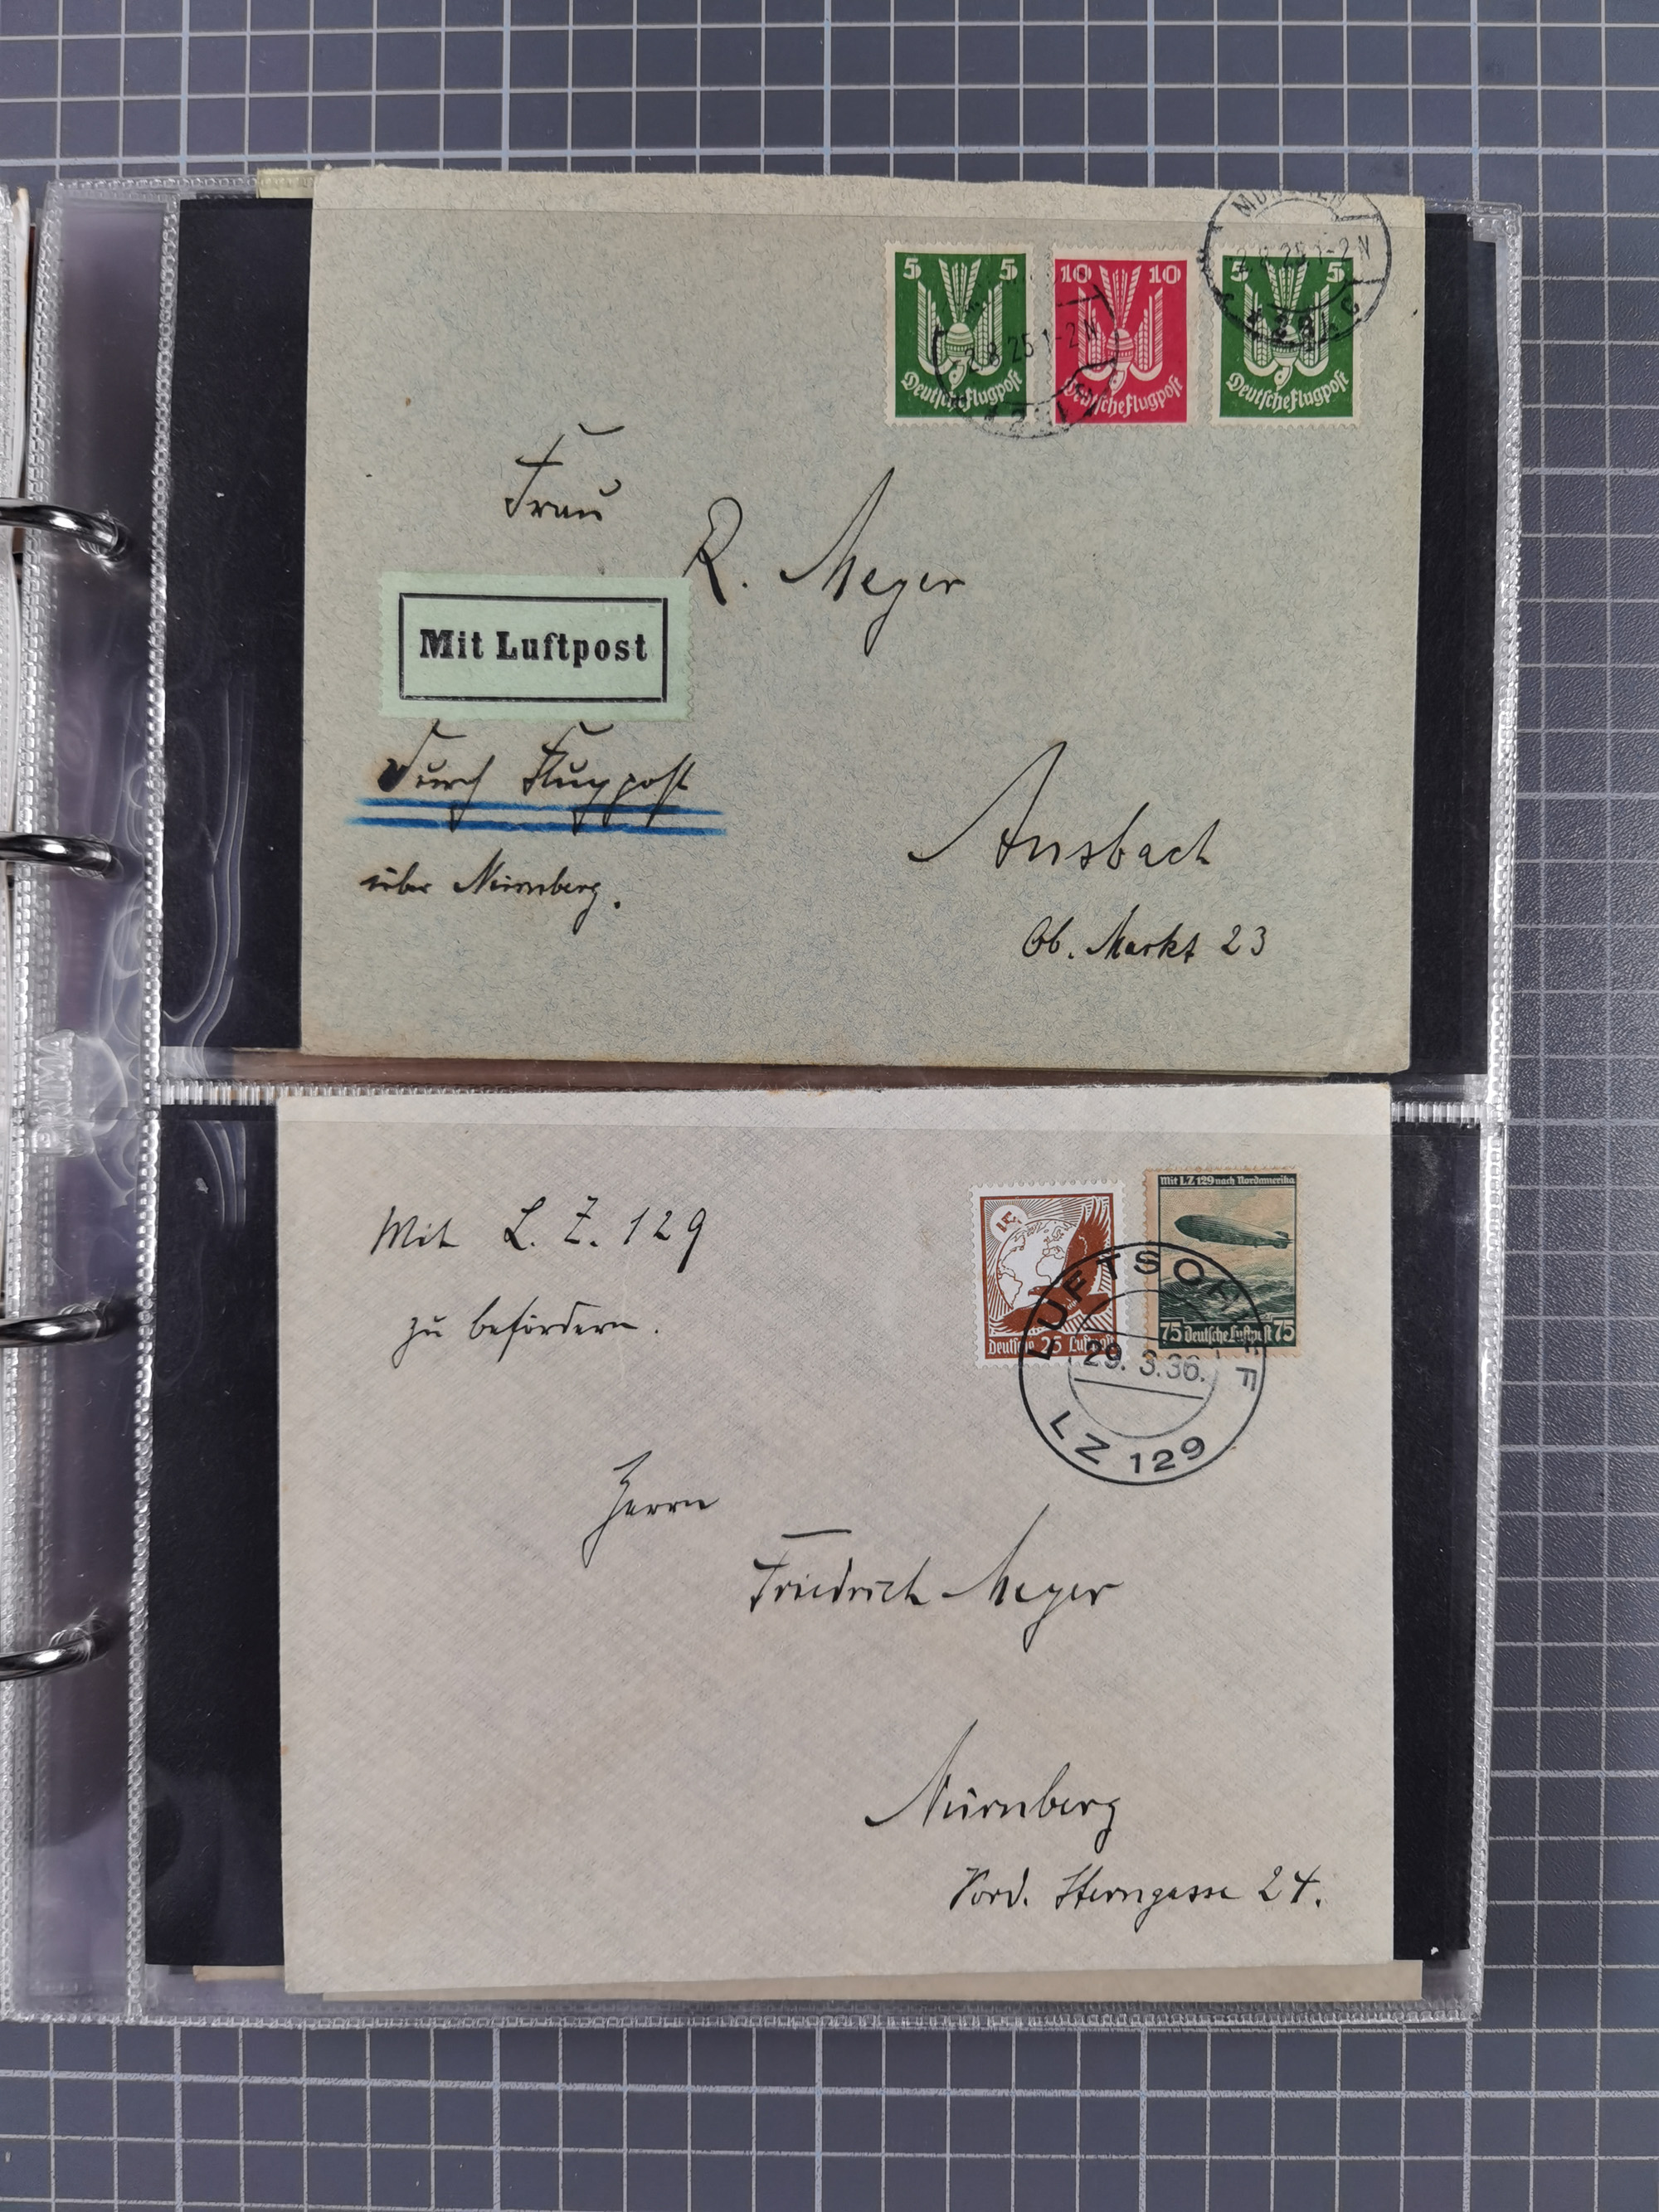 MÜNCHEN
2.8.25.1-2N
* 2 B.P.C
5 5
Deutsche Flugpost
10 10
Deutsche Flugpost
5 5
Deutsche Flugpost
2.8.25 1-2N
Frau
R. Meyer
Mit Luftpost
Durch Flugpost
über Nürnberg.
Ansbach
Ob. Markt 23
PRIMA
Mit L. Z. 129
zu befördern.
Deutsche 25 Luftpost
Mit LZ 129 nach Nordamerika
75 Deutsche Luftpost 75
LUFTSCHIFF
29. 3.36.
LZ 129
Herrn
Friedrich Meyer
Nürnberg
Vord. Sterngasse 24.